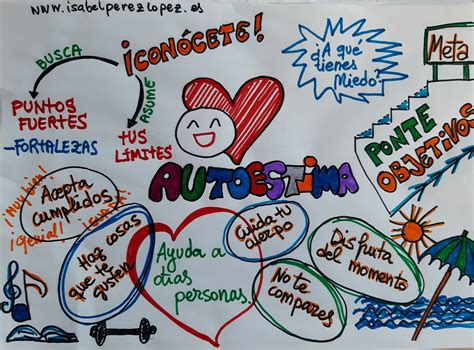 www.isabelperezlopez.es
¡CONÓCETE!
BUSCA
ASUME
PUNTOS
FUERTES
-FORTALEZAS
TUS
LÍMITES
¿A qué
tienes
Miedo?
Meta
PONTE
OBJETIVOS
AUTOESTIMA
¡Muy bien!
Acepta
cumplidos
¡genial!
Haz cosas
que te
gusten
Ayuda a
otras
personas.
Cuida tu
cuerpo
No te
compares
Disfruta
del momento